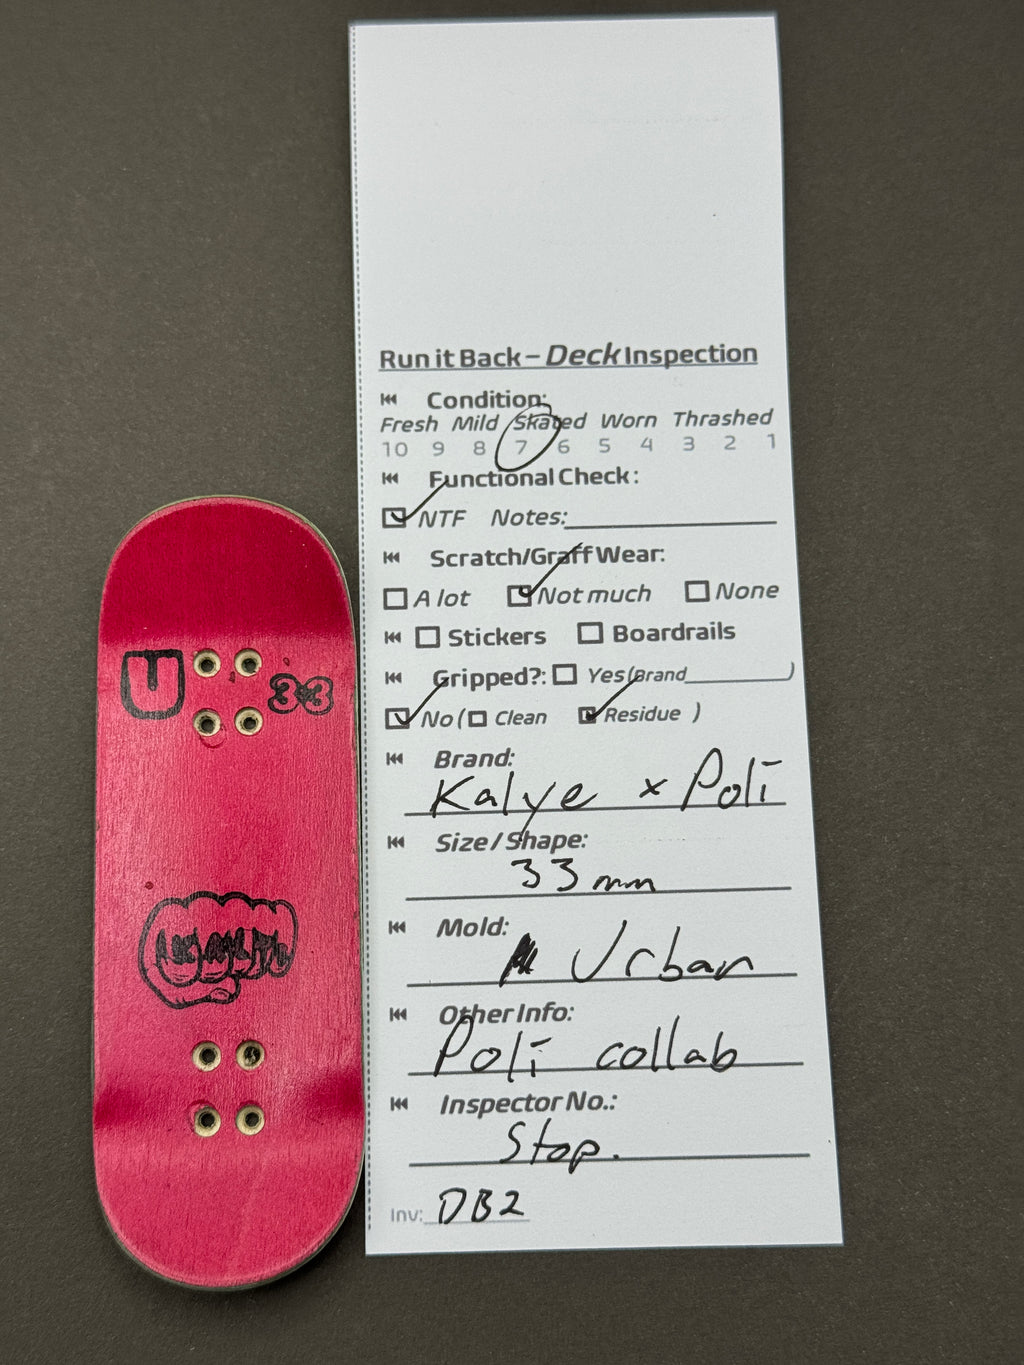 Run it Back – Deck Inspection
Condition:
Fresh Mild Skated Worn Thrashed
10 9 8 7 6 5 4 3 2 1
Functional Check:
NTF Notes:
Scratch/Graff Wear:
A lot Not much None
Stickers Boardrails
Gripped?: Yes (Brand )
No ( Clean Residue )
Brand:
Kalye x Poli
Size / Shape:
33 mm
Mold:
Urban
Other Info:
Poli collab
Inspector No.:
Stop.
Inv: DB2
U 33